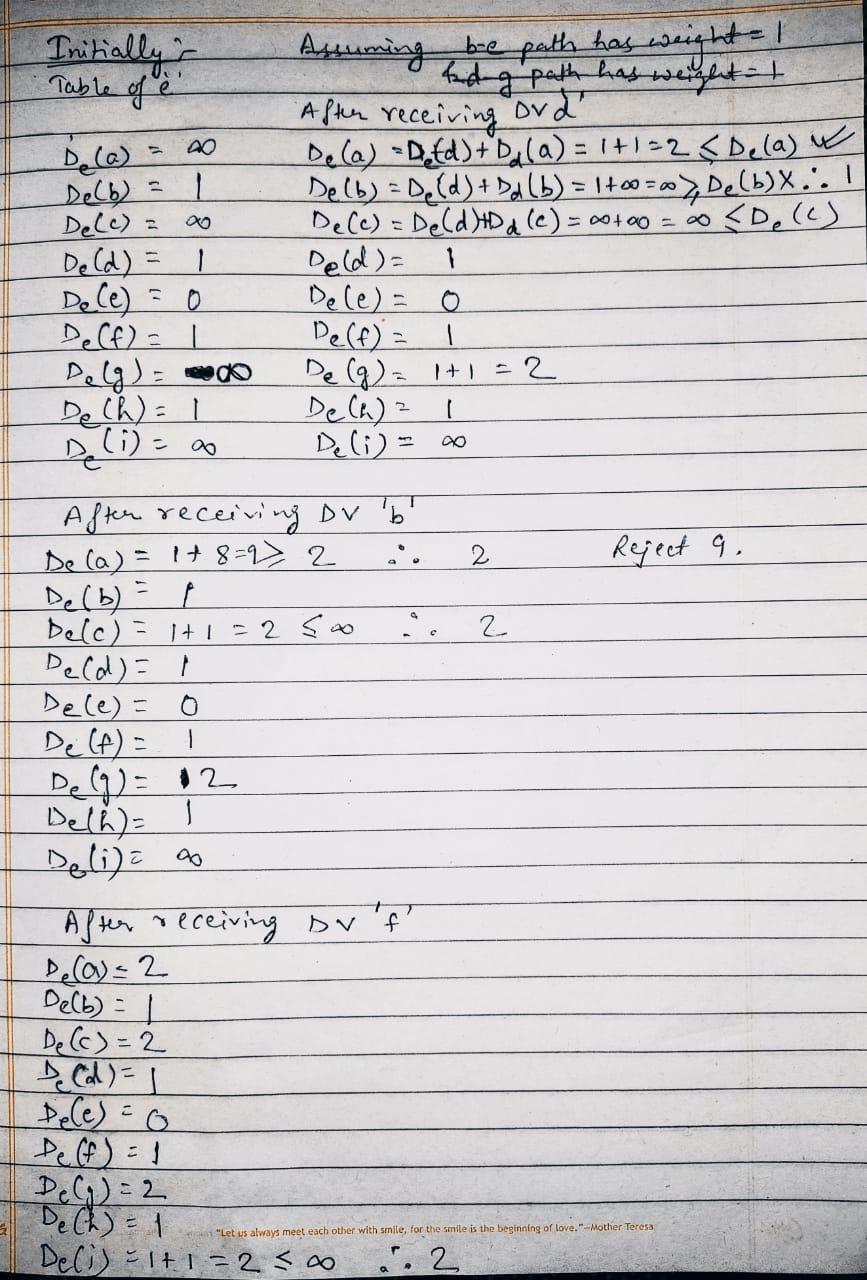 Initially :-
Table of 'e'
Assuming b-e path has weight = 1
& d-g path has weight = 1
After receiving DV d'
De(a) = ∞ De(a) = De(d) + Dd(a) = 1+1=2 ≤ De(a) ✓
De(b) = 1 De(b) = De(d) + Dd(b) = 1+∞=∞ ≥ De(b) X ∴ 1
De(c) = ∞ De(c) = De(d)+Dd(c) = ∞+∞ = ∞ ≤ De(c)
De(d) = 1 De(d) = 1
De(e) = 0 De(e) = 0
De(f) = 1 De(f) = 1
De(g) = ∞ De(g) = 1+1 = 2
De(h) = 1 De(h) = 1
De(i) = ∞ De(i) = ∞
After receiving DV 'b'
De(a) = 1+8=9 ≥ 2 ∴ 2 Reject 9.
De(b) = 1
De(c) = 1+1 = 2 ≤ ∞ ∴ 2
De(d) = 1
De(e) = 0
De(f) = 1
De(g) = 2
De(h) = 1
De(i) = ∞
After receiving DV 'f'
De(a) = 2
De(b) = 1
De(c) = 2
De(d) = 1
De(e) = 0
De(f) = 1
De(g) = 2
De(h) = 1
"Let us always meet each other with smile, for the smile is the beginning of love."—Mother Teresa
De(i) = 1+1 = 2 ≤ ∞ ∴ 2